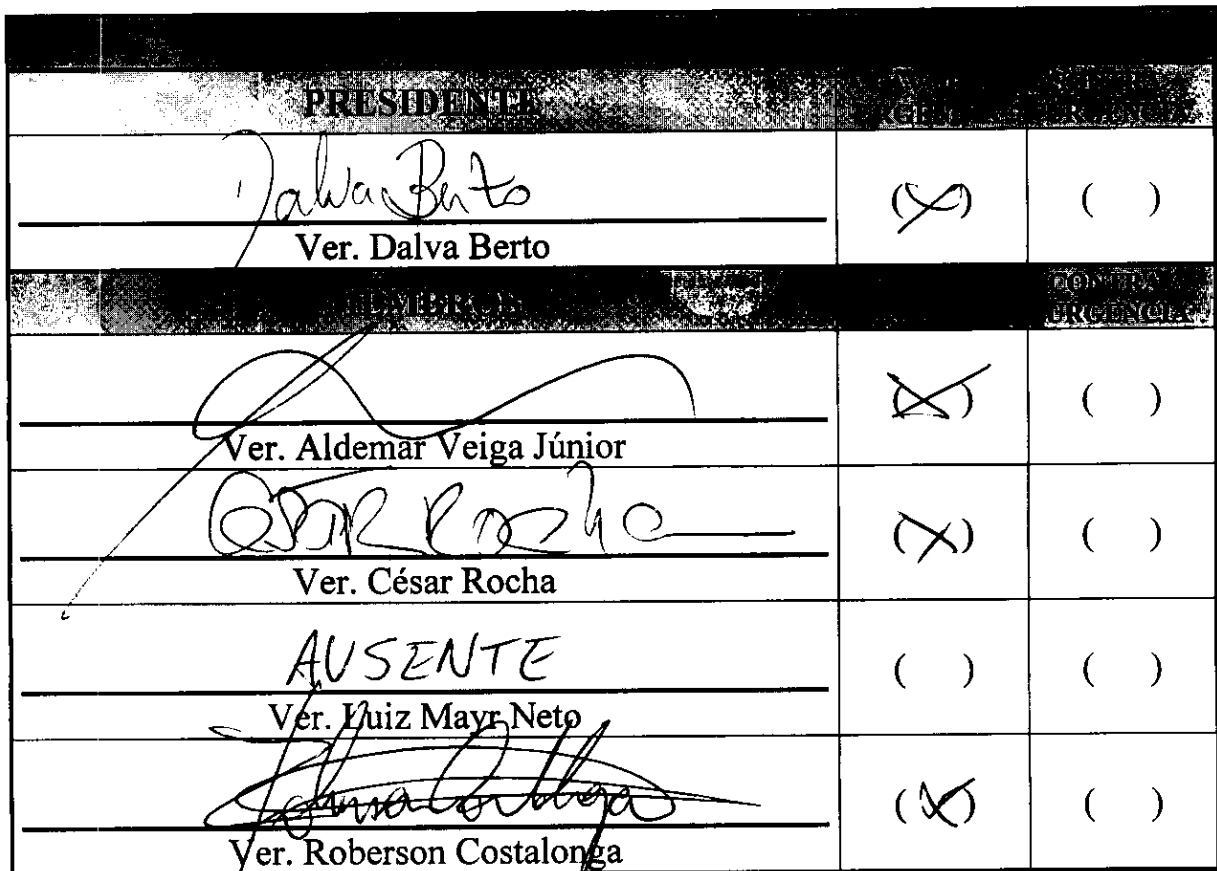 PRESIDENTE
Dalva Berto (X) ( )
Ver. Dalva Berto
CONTRA
URGÊNCIA
(X) ( )
Ver. Aldemar Veiga Júnior
César Rocha (X) ( )
Ver. César Rocha
AUSENTE ( ) ( )
Ver. Luiz Mayr Neto
(X) ( )
Ver. Roberson Costalonga